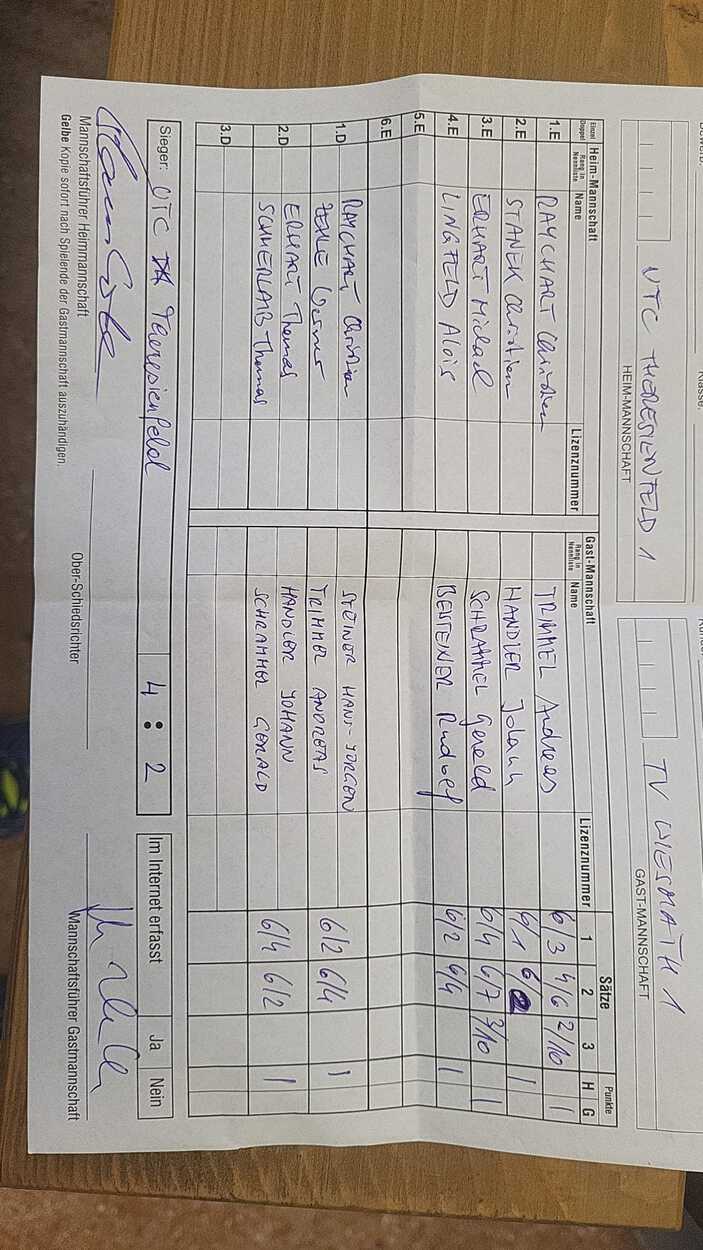 UTC THERESIENFELD 1
HEIM-MANNSCHAFT
TV WIESMATH 1
GAST-MANNSCHAFT
Einzel Doppel Heim-Mannschaft Rang in Nennliste Name Lizenznummer Gast-Mannschaft Rang in Nennliste Name Lizenznummer Sätze 1 2 3 Punkte H G
1.E RAYCHART Christian TRIMMEL Andreas 6/3 4/6 2/10 1
2.E STANEK Christian HANDLER Johann 6/1 6/2 1
3.E ERHART Michael SCHRAMMEL Gerald 6/4 6/7 3/10 1
4.E LINGFELD Alois BEISTEINER Rudolf 6/2 6/4 1
5.E
6.E
1.D RAYCHART Christian STEINER HANS-JÜRGEN
Werner TRIMMEL ANDREAS 6/2 6/4 1
2.D ERHART Thomas HANDLER JOHANN
SCHIERLAIß Thomas SCHRAMMEL GERALD 6/4 6/2 1
3.D
Sieger: UTC Theresienfeld 4 : 2 Im Internet erfasst Ja Nein
Mannschaftsführer Heimmannschaft Ober-Schiedsrichter Mannschaftsführer Gastmannschaft
Gelbe Kopie sofort nach Spielende der Gastmannschaft auszuhändigen.